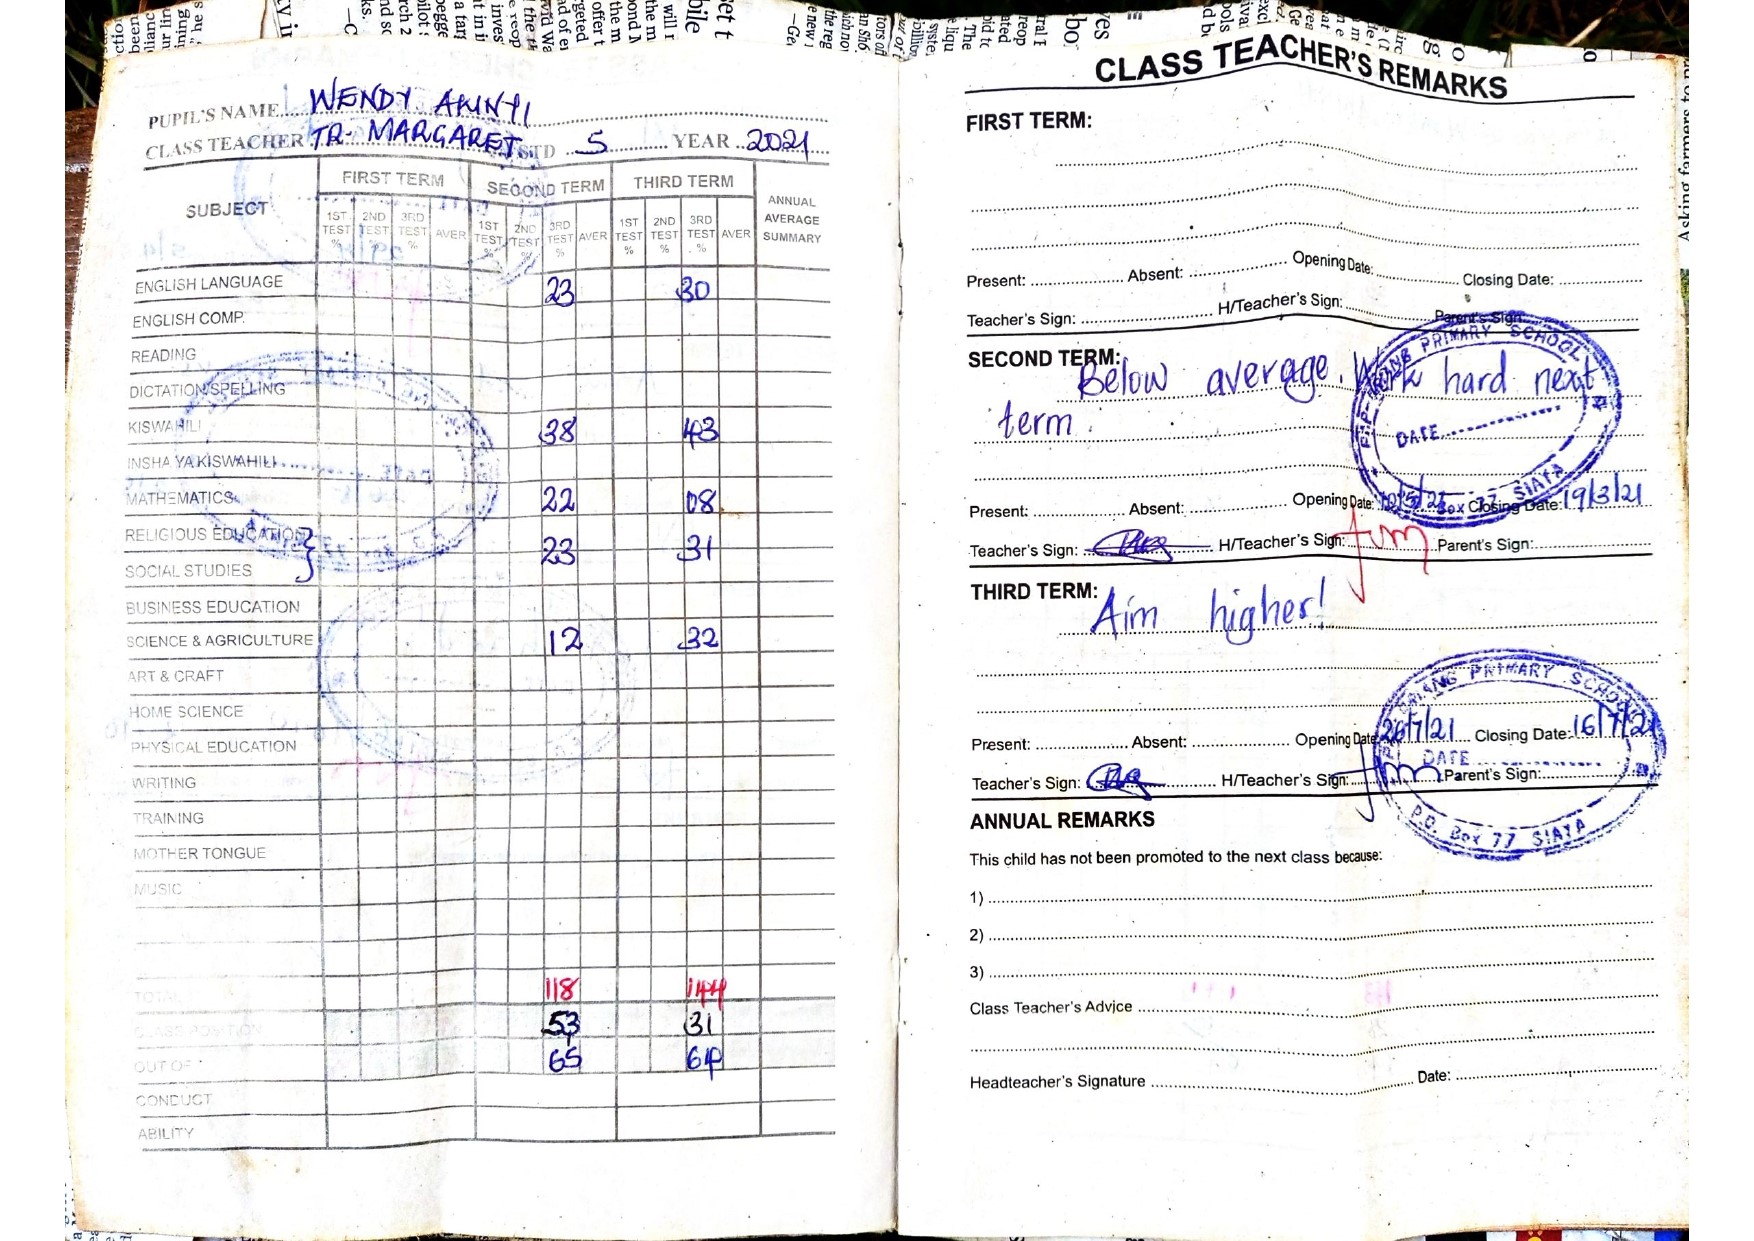 PUPIL'S NAME WENDY AKINYI
CLASS TEACHER TR. MARGARET STD 5 YEAR 2021
SUBJECT FIRST TERM SECOND TERM THIRD TERM ANNUAL AVERAGE SUMMARY
1ST TEST % 2ND TEST % 3RD TEST % AVER 1ST TEST % 2ND TEST % 3RD TEST % AVER 1ST TEST % 2ND TEST % 3RD TEST % AVER
ENGLISH LANGUAGE 23 30
ENGLISH COMP.
READING
DICTATION/SPELLING
KISWAHILI 38 43
INSHA YA KISWAHILI
MATHEMATICS 22 08
RELIGIOUS EDUCATION
SOCIAL STUDIES 23 31
BUSINESS EDUCATION
SCIENCE & AGRICULTURE 12 32
ART & CRAFT
HOME SCIENCE
PHYSICAL EDUCATION
WRITING
TRAINING
MOTHER TONGUE
MUSIC
TOTAL 118 144
CLASS POSITION 53 31
OUT OF 65 64
CONDUCT
ABILITY
CLASS TEACHER'S REMARKS
FIRST TERM:
Present: Absent: Opening Date: Closing Date:
Teacher's Sign: H/Teacher's Sign: Parent's Sign:
SECOND TERM: Below average. Work hard next
term.
PRIMARY SCHOOL
DATE
77 SIAYA
Present: Absent: Opening Date: Closing Date: 19/3/21
Teacher's Sign: H/Teacher's Sign: Parent's Sign:
THIRD TERM: Aim higher!
PRIMARY SCHOOL
Present: Absent: Opening Date 26/7/21 Closing Date: 16/7/21
DATE
Teacher's Sign: H/Teacher's Sign: Parent's Sign:
P.O. Box 77 SIAYA
ANNUAL REMARKS
This child has not been promoted to the next class because:
1)
2)
3)
Class Teacher's Advice
Headteacher's Signature Date: